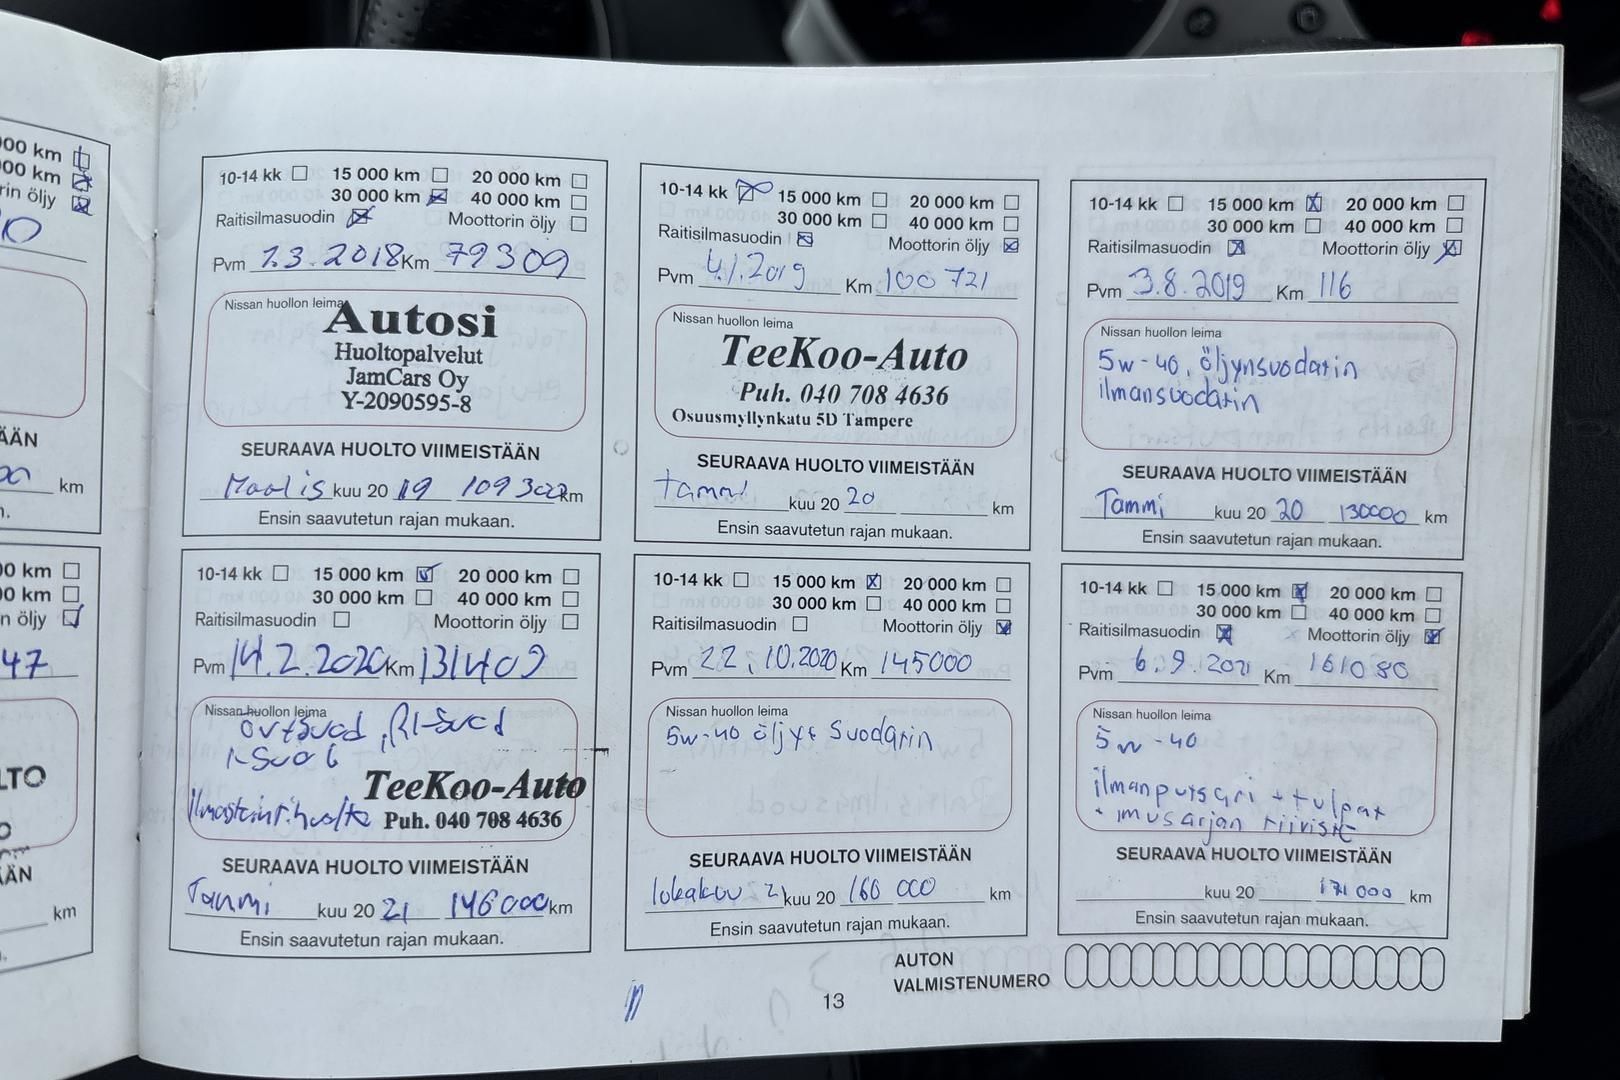 00 km
00 km
rin öljy
ÄÄN
km
0 km
0 km
n öljy
47
LTO
ÄÄN
km
10-14 kk 15 000 km 20 000 km
30 000 km 40 000 km
Raitisilmasuodin Moottorin öljy
Pvm 7.3.2018 Km 79309
Nissan huollon leima
Autosi
Huoltopalvelut
JamCars Oy
Y-2090595-8
SEURAAVA HUOLTO VIIMEISTÄÄN
Maalis kuu 20 19 109 300 km
Ensin saavutetun rajan mukaan.
10-14 kk 15 000 km 20 000 km
30 000 km 40 000 km
Raitisilmasuodin Moottorin öljy
Pvm 4.1.2019 Km 100 721
Nissan huollon leima
TeeKoo-Auto
Puh. 040 708 4636
Osuusmyllynkatu 5D Tampere
SEURAAVA HUOLTO VIIMEISTÄÄN
tammi kuu 20 20 km
Ensin saavutetun rajan mukaan.
10-14 kk 15 000 km 20 000 km
30 000 km 40 000 km
Raitisilmasuodin Moottorin öljy
Pvm 3.8.2019 Km 116
Nissan huollon leima
5w-40, öljynsuodatin
ilmansuodatin
SEURAAVA HUOLTO VIIMEISTÄÄN
Tammi kuu 20 20 130000 km
Ensin saavutetun rajan mukaan.
10-14 kk 15 000 km 20 000 km
30 000 km 40 000 km
Raitisilmasuodin Moottorin öljy
Pvm 14.2.2020 Km 131409
Nissan huollon leima
TeeKoo-Auto
Puh. 040 708 4636
SEURAAVA HUOLTO VIIMEISTÄÄN
Tammi kuu 20 21 146000 km
Ensin saavutetun rajan mukaan.
10-14 kk 15 000 km 20 000 km
30 000 km 40 000 km
Raitisilmasuodin Moottorin öljy
Pvm 22.10.2020 Km 145000
Nissan huollon leima
5w-40 öljyt suodatin
SEURAAVA HUOLTO VIIMEISTÄÄN
lokakuu 21 kuu 20 160 000 km
Ensin saavutetun rajan mukaan.
10-14 kk 15 000 km 20 000 km
30 000 km 40 000 km
Raitisilmasuodin Moottorin öljy
Pvm 6.9.2021 Km 161080
Nissan huollon leima
5w-40
ilmanputsari + tulpat
+ imusarjan tiiviste
SEURAAVA HUOLTO VIIMEISTÄÄN
kuu 20 171 000 km
Ensin saavutetun rajan mukaan.
AUTON
VALMISTENUMERO
13